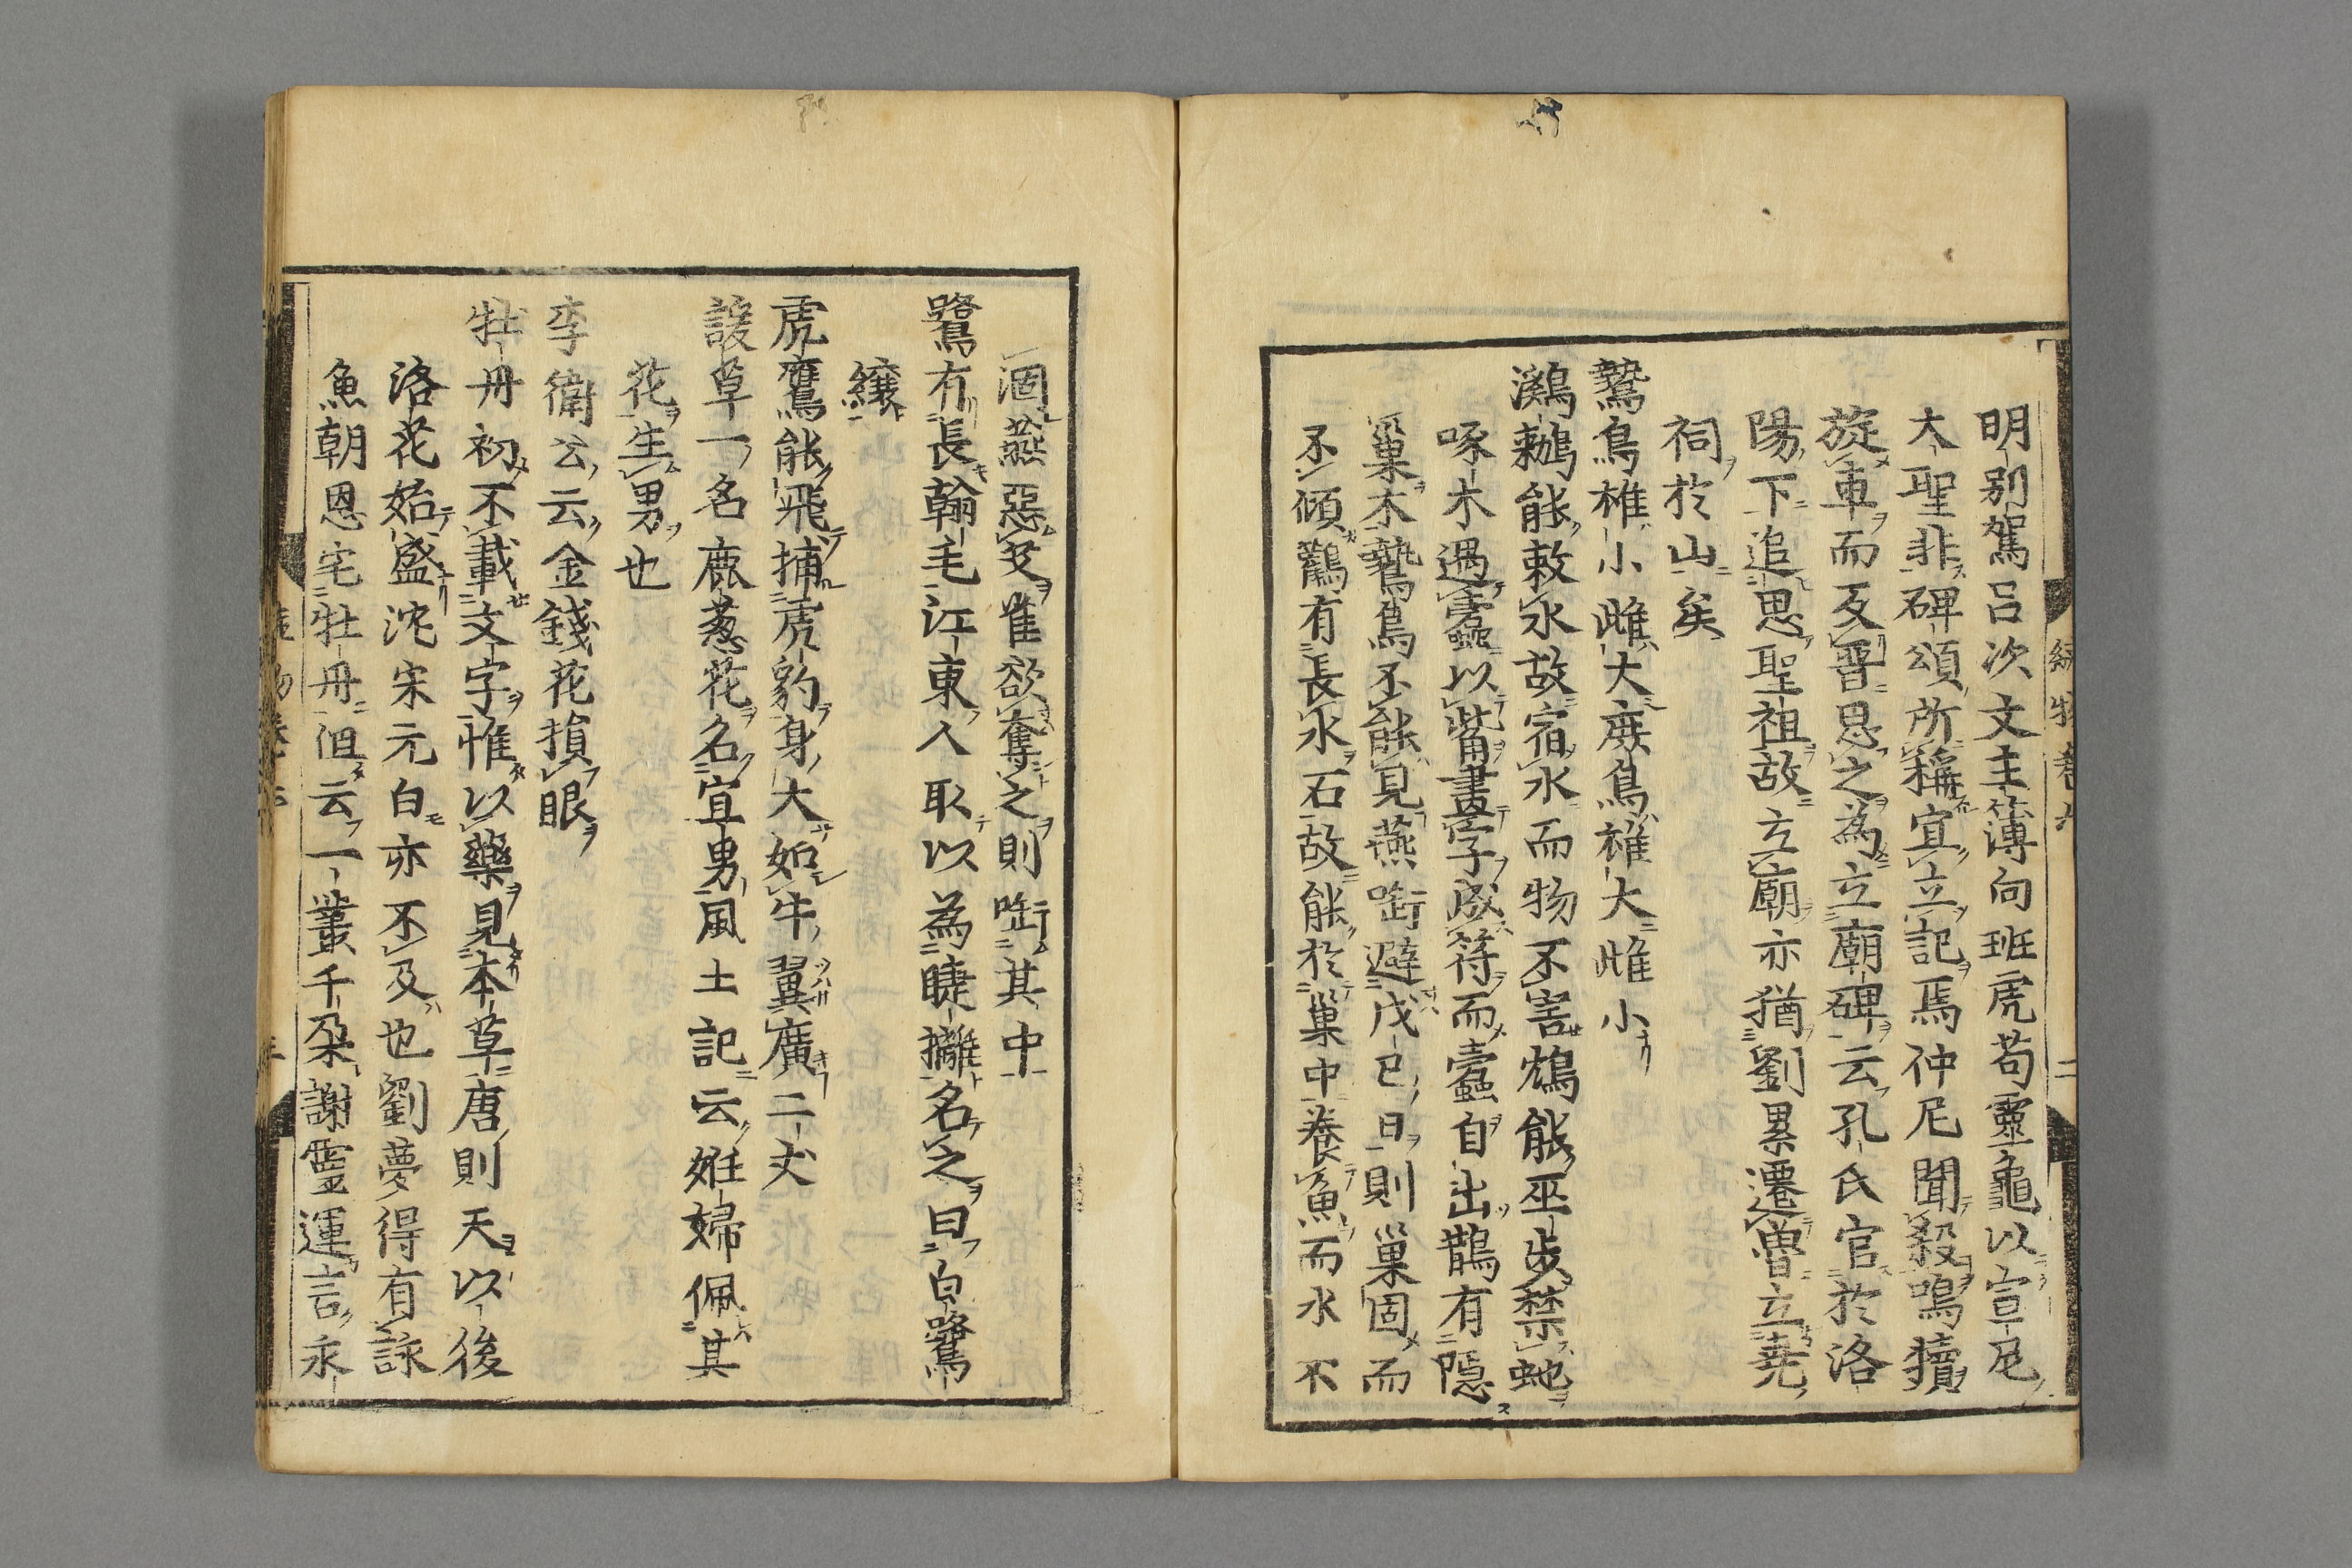 明別駕呂次文主簿向班虎苟靈龜以宣尼
大聖非碑頌所稱宜立記焉仲尼聞殺鳴犢
旋車而反晋思之為立廟碑云孔氏官於洛
陽下追思聖祖故立廟亦猶劉累遷魯立堯
祠於山矣
鷙鳥椎小雌大庶鳥雄大雌小
鸂鶒能敕水故宿水而物不害鴆能巫步禁蛇
啄木遇蠹以觜畫字成符而蠹自出鵲有隠
巢木鷙鳥不能見燕啣避戊己日則巢固而
不傾鸛有長水石故能於巢中養魚而水不
涸燕惡艾雀欲奪之則啣其中
鷺有長翰毛江東人取以為睫攡名之曰白鷺
縗
虎鷹能飛捕虎豹身大如牛翼廣二丈
諼草一名鹿葱花名宜男風土記云姙婦佩其
花生男也
李衛公云金錢花損眼
牡丹初不載文字惟以藥見本草唐則天以後
洛花始盛沈宋元白亦不及也劉夢得有詠
魚朝恩宅牡丹但云一叢千朶謝靈運言永